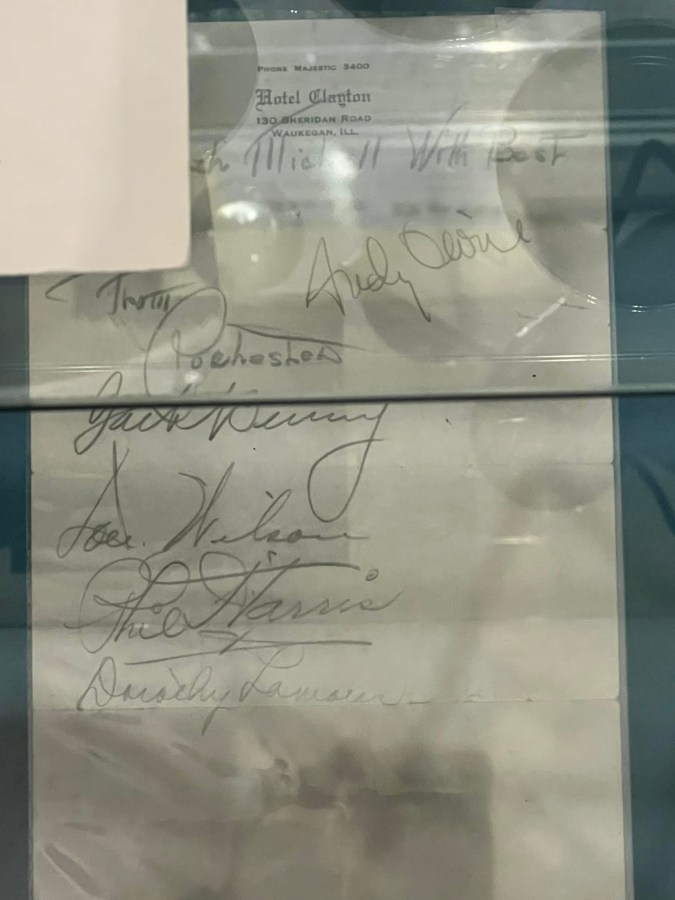 PHONE MAJESTIC 3400
Hotel Clayton
130 SHERIDAN ROAD
WAUKEGAN, ILL.
With Best
Andy Devine
From
Rochester
Jack Benny
Don Wilson
Phil Harris
Dorothy Lamour